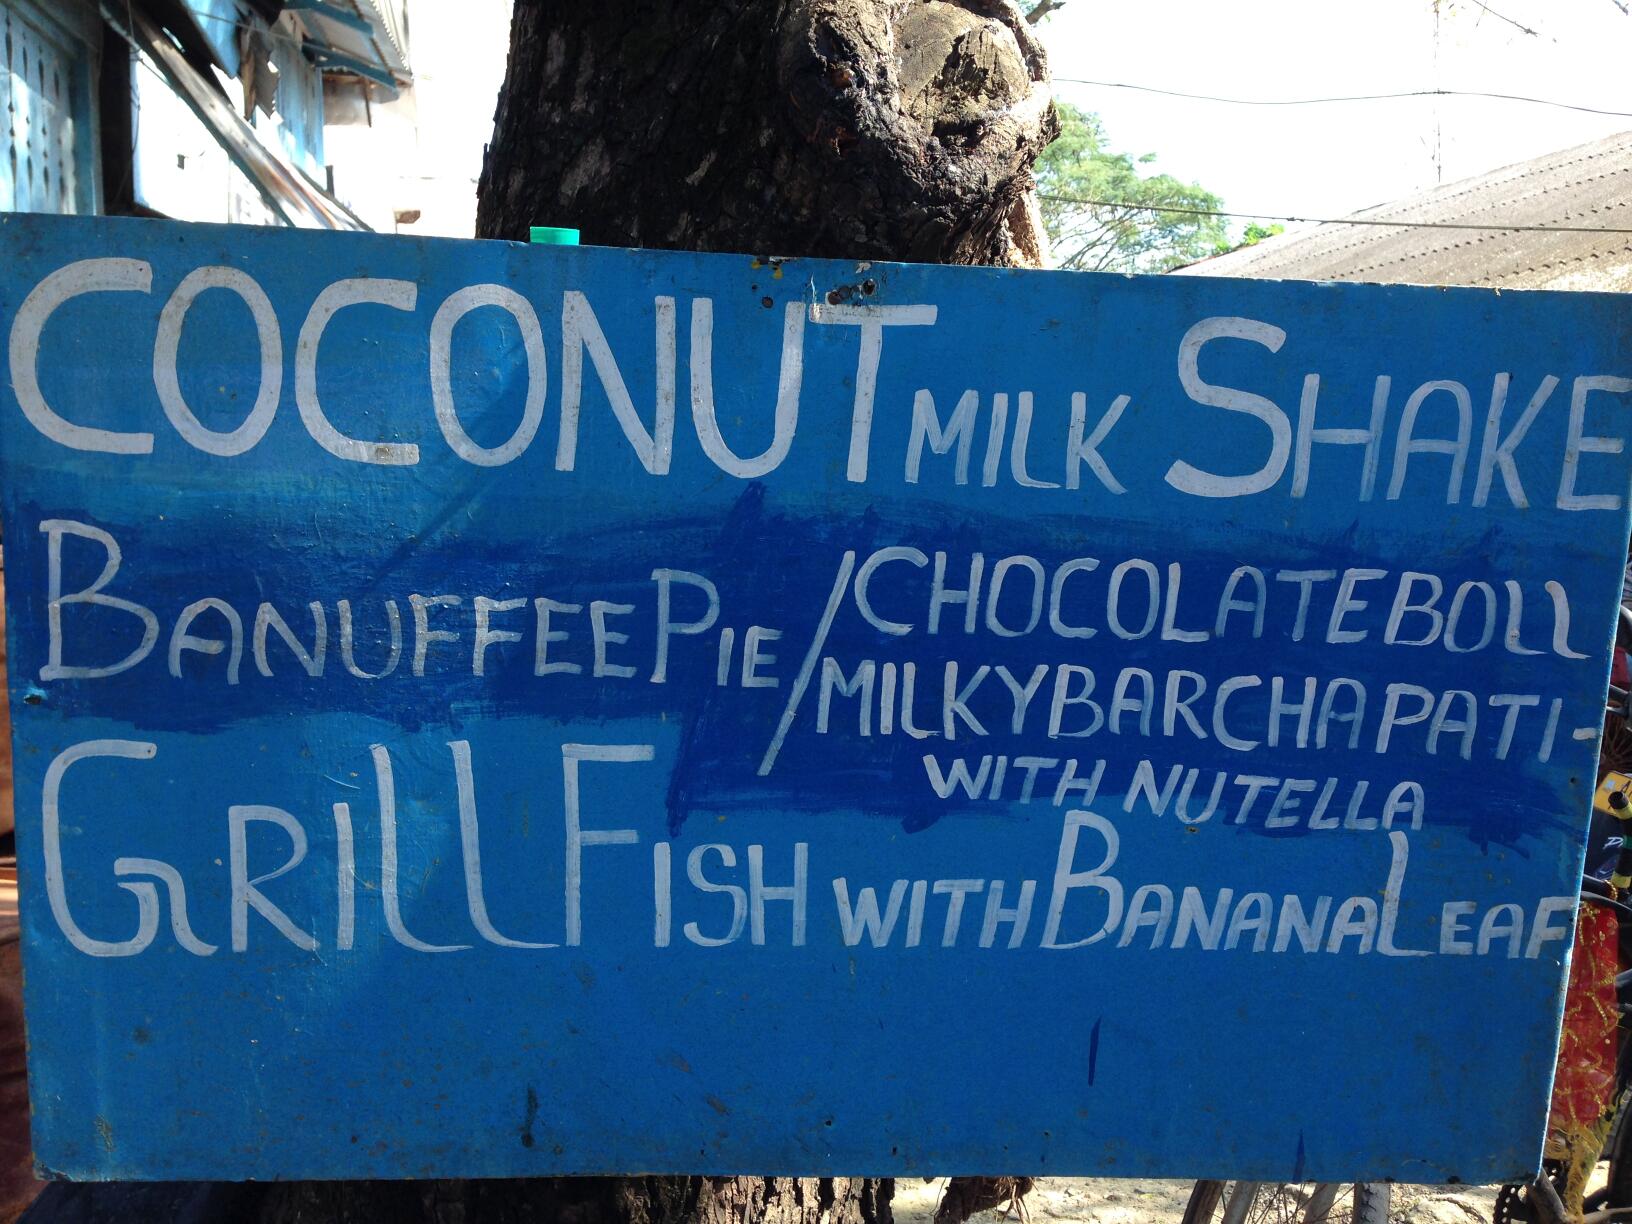 COCONUT MILK SHAKE
BANUFFEE PIE / CHOCOLATE BOLL
/ MILKYBAR CHAPATI-
WITH NUTELLA
GRILL FISH WITH BANANA LEAF